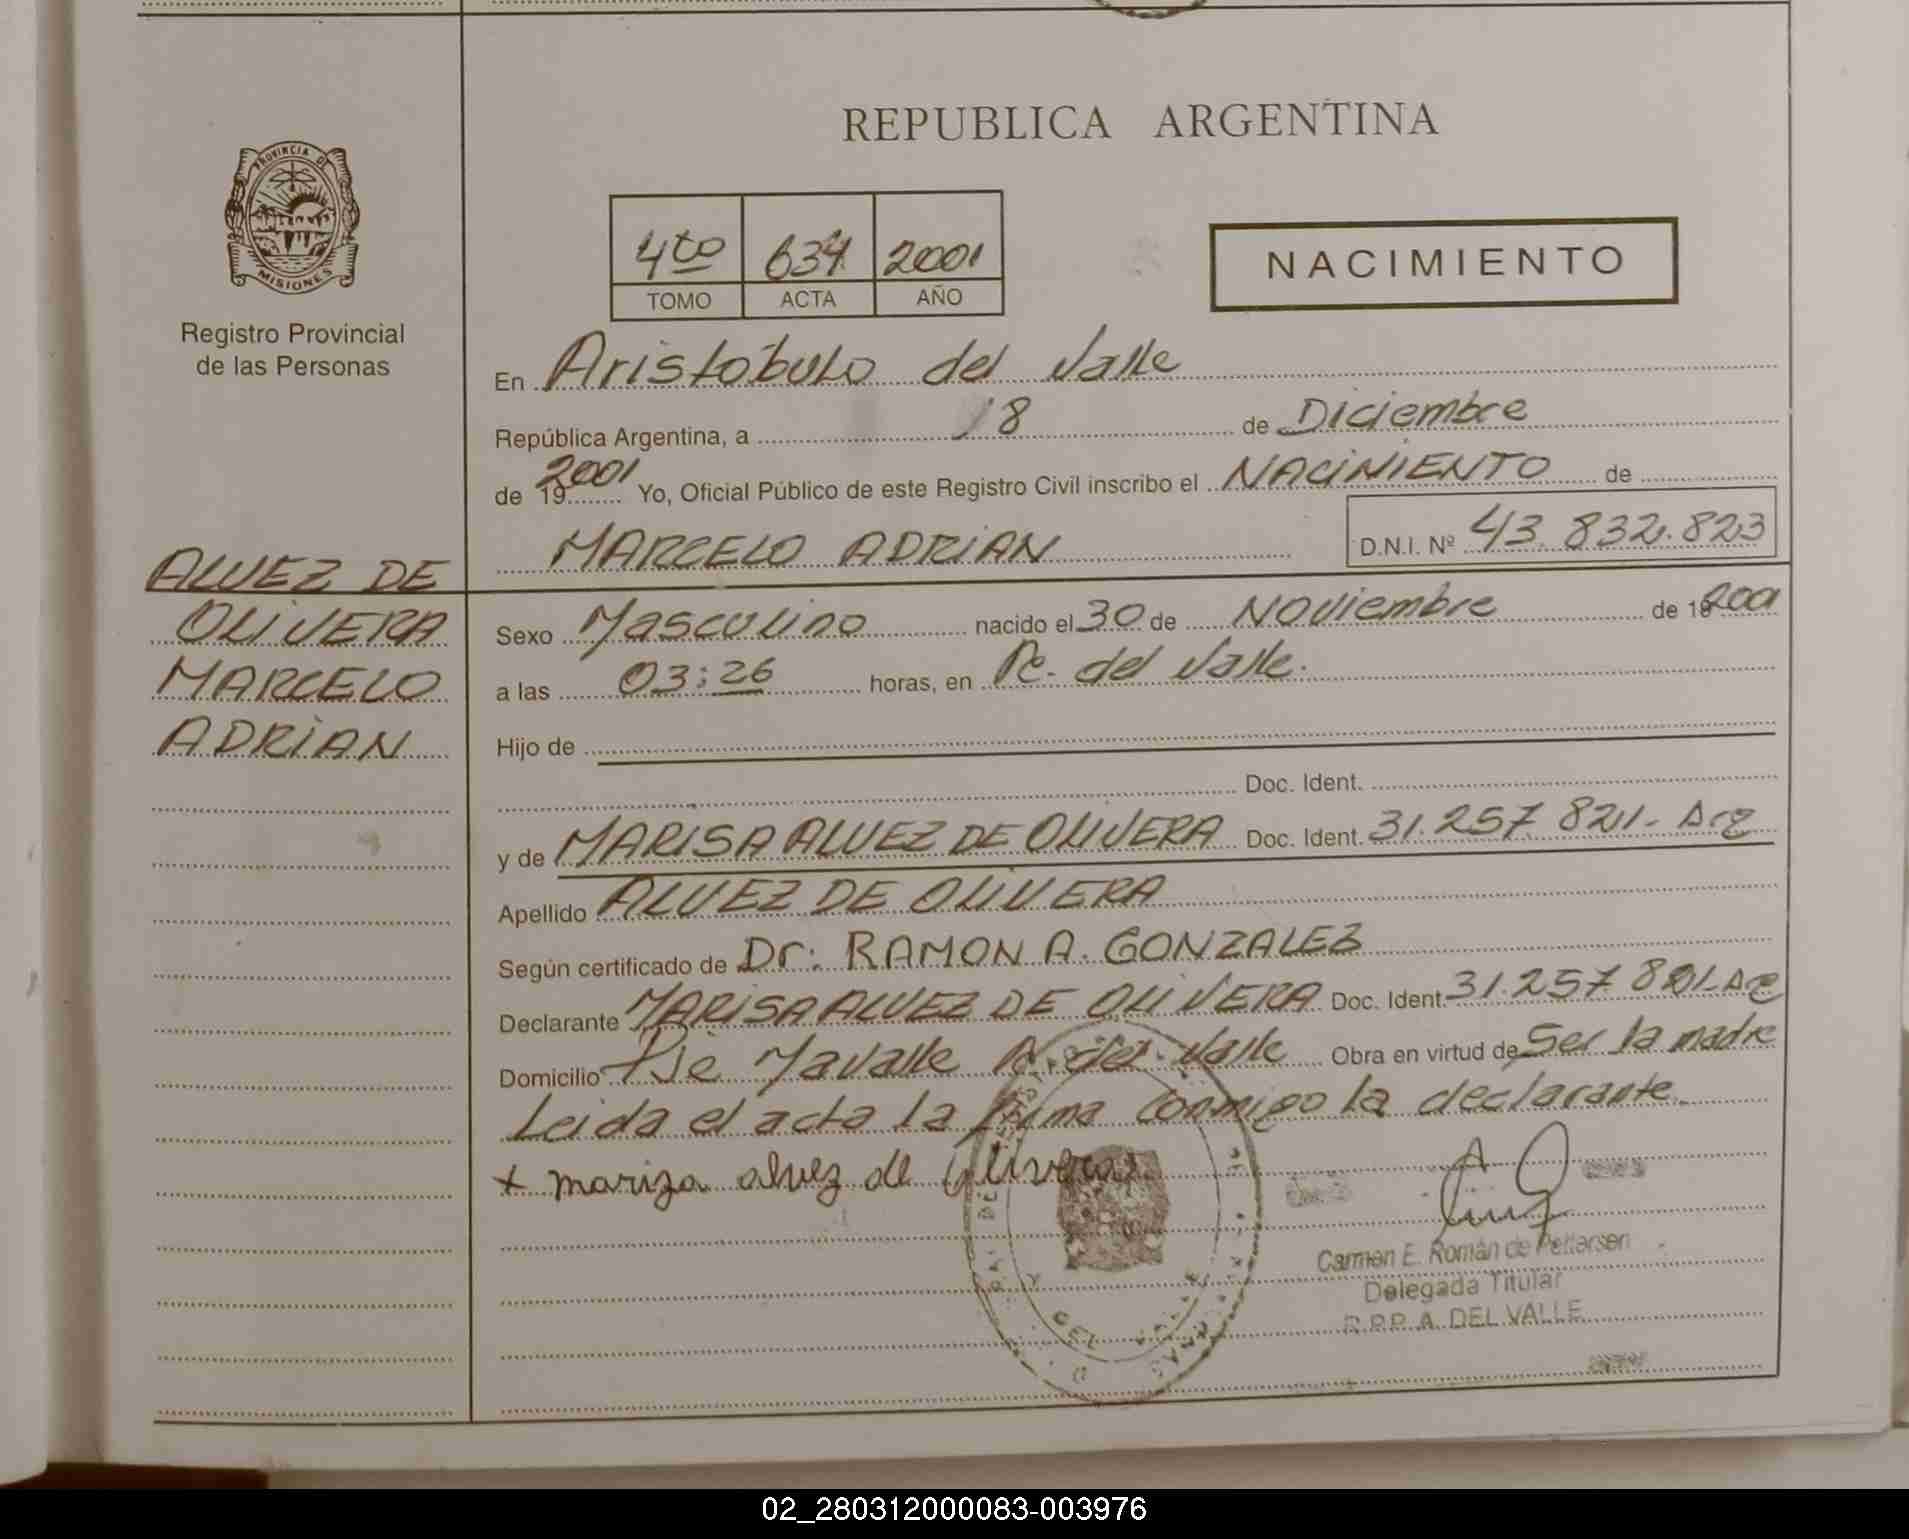 REPUBLICA ARGENTINA
PROVINCIA DE
MISIONES
Registro Provincial
de las Personas
4to 634 2001
TOMO ACTA AÑO
NACIMIENTO
En Aristóbulo del Valle
República Argentina, a 18 de Diciembre
de 19 2001 Yo, Oficial Público de este Registro Civil inscribo el NACIMIENTO de
MARCELO ADRIAN D.N.I. Nº 43.832.823
ALVEZ DE
OLIVERA
MARCELO
ADRIAN
Sexo Masculino nacido el 30 de Noviembre de 19 2001
a las 03:26 horas, en A. del Valle.
Hijo de
Doc. Ident.
y de MARISA ALVEZ DE OLIVERA Doc. Ident. 31.257.821-
Apellido ALVEZ DE OLIVERA
Según certificado de Dr: RAMON A. GONZALEZ
Declarante MARISA ALVEZ DE OLIVERA Doc. Ident. 31.257.821-
Domicilio Pje Mavalle A. del Valle Obra en virtud de Ser la madre
Leida el acta la firma conmigo la declarante.
+ mariza alvez de oliveras
Carmen E. Román de Pettersen
Delegada Titular
R.P.P. A. DEL VALLE
02_280312000083-003976